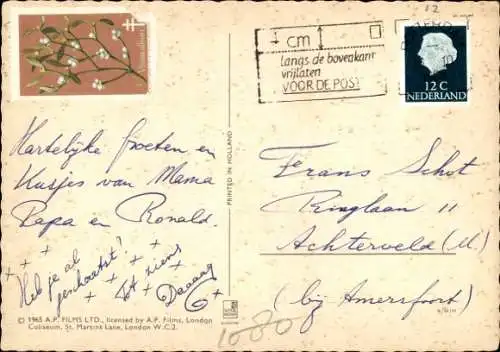 12
cm
langs de bovenkant
vrijlaten
VOOR DE POST
10
12 C
NEDERLAND
Hartelijke groeten en
Kusjes van Mama
Papa en Ronald.
Heb je al
geschaatst?
Tot ziens
Daaaag
PRINTED IN HOLLAND
Frans Schot
Ringlaan 11
Achterveld (U.)
(bij Amersfoort)
© 1965 A.P. FILMS LTD., licensed by A.P. Films, London
Coliseum, St. Martins Lane, London W.C.2.
1080